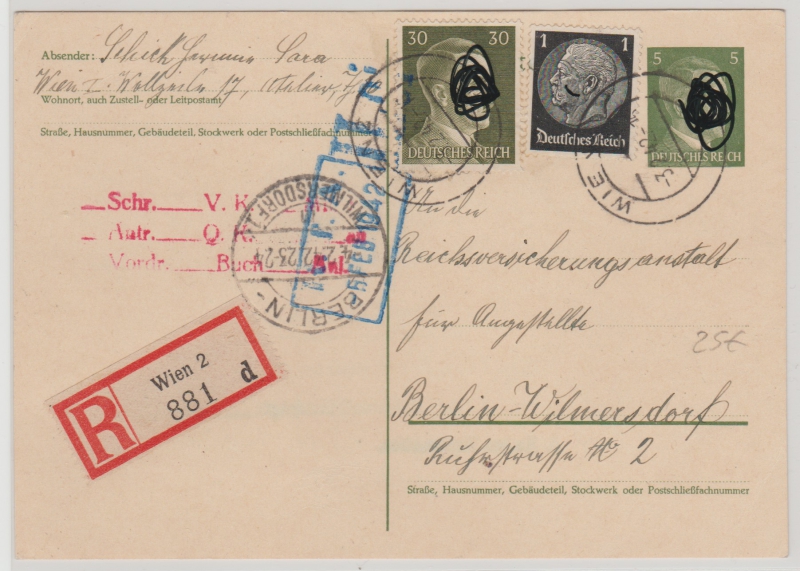 Absender: Schick Hermine Sara
Wien I. Wollzeile 17, Atelier
Wohnort, auch Zustell- oder Leitpostamt
Straße, Hausnummer, Gebäudeteil, Stockwerk oder Postschließfachnummer
30 30
DEUTSCHES REICH
1 1
Deutsches Reich
5 5
DEUTSCHES REICH
WIEN
WIEN
Schr. V. K.
Antr. Q. K.
Vordr. Buch
BERLIN-WILMERSDORF 1
FEB 1942
R
Wien 2
881 d
An die
Reichsversicherungsanstalt
für Angestellte
25€
Berlin-Wilmersdorf
Ruhrstrasse No 2
Straße, Hausnummer, Gebäudeteil, Stockwerk oder Postschließfachnummer